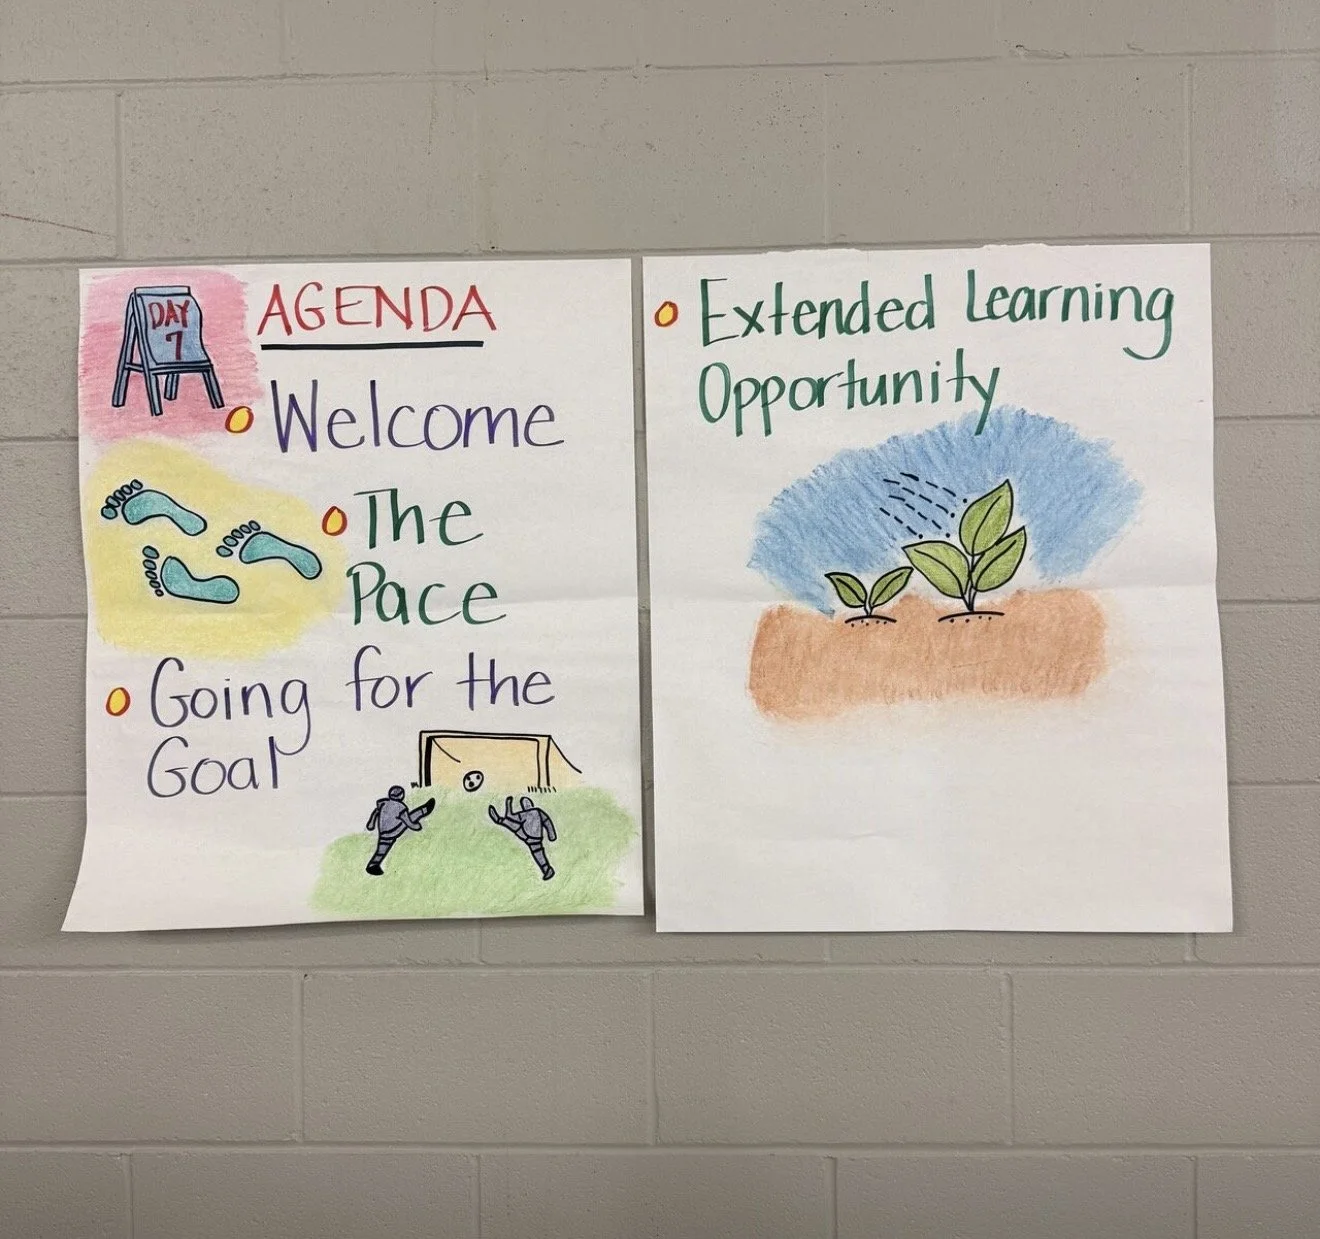 DAY
7
AGENDA
Welcome
The
Pace
Going for the
Goal
Extended Learning
Opportunity